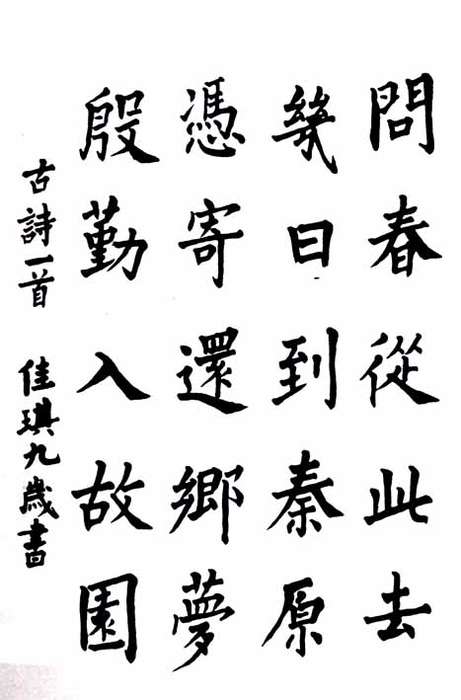 問春從此去
幾日到秦原
憑寄還鄉夢
殷勤入故園
古詩一首 佳琪九歲書